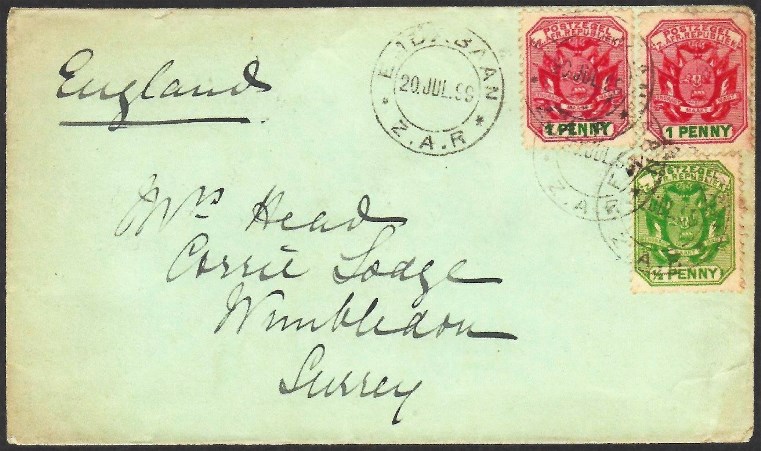 England
20 JUL.99
Z.A.R
POSTZEGEL
Z.AFR.REPUBLIEK
1 PENNY
POSTZEGEL
Z.AFR.REPUBLIEK
1 PENNY
POSTZEGEL
Z.AFR.REPUBLIEK
½ PENNY
Z.A.R
Mrs Head
Corrie Lodge
Wimbledon
Surrey